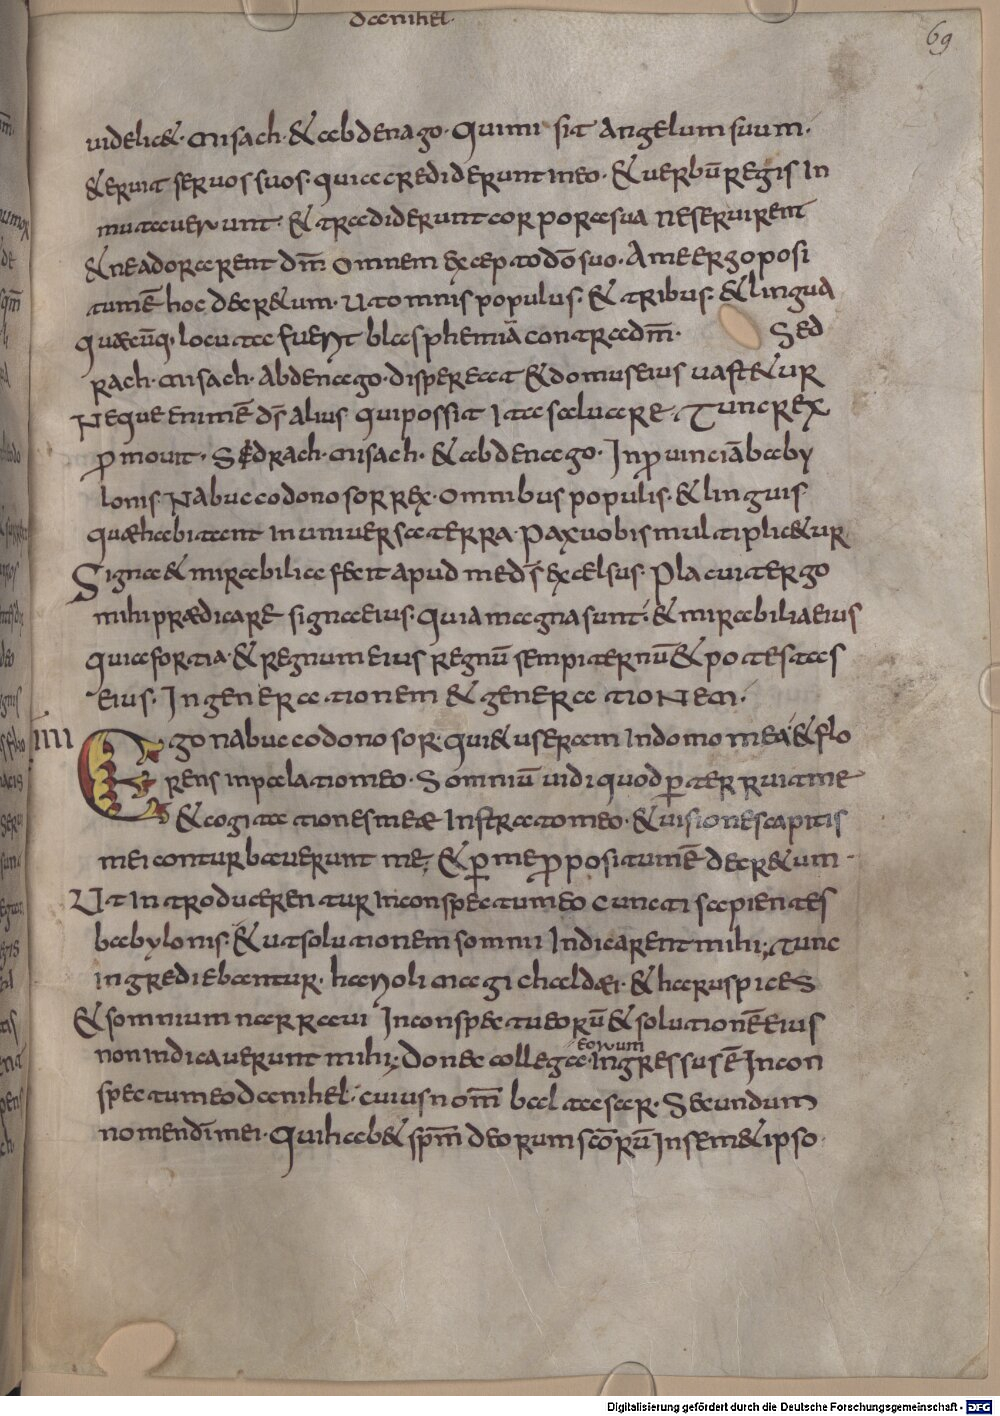 danihel·
69
uidelic&· misach· & abdenago· Qui misit Angelum suum·
& eruit seruos suos· quia crediderunt in eo· & uerbū regis in
mutauerunt· & tradiderunt corpora sua ne seruirent
& ne adorarent dm̄ omnem excepto dō suo· A me ergo posi
tum ē hoc decr&um· ut omnis populus· & tribus· & lingua
quæcūq· locuta fuerit blasphemiā contra dm̄· Sed
rach· misach· Abdenago· dispereat & domus eius uast&ur
Neque enim ē ds̄ alius qui possit ita saluare· Tunc rex
p̄mouit· Sedrach· misach· & abdenago· In p̄uinciā baby
lonis· Nabuccodonosor rex· omnibus populis· & linguis·
quæ habitant in uniuersa terra· Pax uobis multiplic&ur
Signa & mirabilia fecit apud me ds̄ excelsus· Placuit ergo
mihi prædicare signa eius· Quia magna sunt· & mirabilia eius
quia fortia· & regnum eius regnū sempiternū & potestas
eius· In generationem & generationem·
IIII Ego nabuccodonosor· qui&us eram in domo mea· & flo
rens in palatio meo· Somniū uidi quod p̄terruit me
& cogitationes meæ In strato meo· & uisiones capitis
mei conturbauerunt me; & p̄ me p̄positum ē decr&um·
Ut introducerentur in conspectu meo cuncti sapientes
babylonis· & ut solutionem somnii Indicarent mihi; Tunc
ingrediebantur· harioli magi chaldæi· & haruspices
& somnium narraui In conspectu eorū & solutionē eius
eorum
non indicauerunt mihi; donec collega· Ingressus ē In con
spectu meo danihel· cuius nom̄ baltasar· Secundum
nomen dī mei· Qui hab& spm̄ deorum scōrū In sem&ipso·
Digitalisierung gefördert durch die Deutsche Forschungsgemeinschaft - DFG